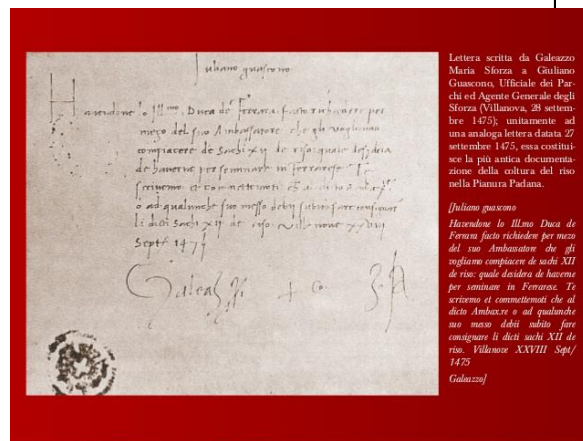 Juliano guascono
Havendone lo Ill.mo Duca de Ferrara facto richiedere per
mezo del suo Ambassatore che gli vogliamo
compiacere de Sachi XII de riso: quale desydera
de haverne per seminare in Ferrarese Te
scrivemo et commettemoti ch al dicto Ambax.re
o ad qualunche suo messo debij subito fare consignare
li dicti Sachi XII de riso. Villanove XXVIII
Septr 1475
Galeaz
Lettera scritta da Galeazzo
Maria Sforza a Giuliano
Guascono, Ufficiale dei Par-
chi ed Agente Generale degli
Sforza (Villanova, 28 settem-
bre 1475); unitamente ad
una analoga lettera datata 27
settembre 1475, essa costitui-
sce la più antica documenta-
zione della coltura del riso
nella Pianura Padana.
[Juliano guascono
Havendone lo Ill.mo Duca de
Ferrara facto richiedere per mezo
del suo Ambassatore che gli
vogliamo compiacere de sachi XII
de riso: quale desidera de haverne
per seminare in Ferrarese. Te
scrivemo et commettemoti che al
dicto Ambax.re o ad qualunche
suo messo debii subito fare
consignare li dicti sachi XII de
riso. Villanove XXVIII Sept/
1475
Galeazzo]